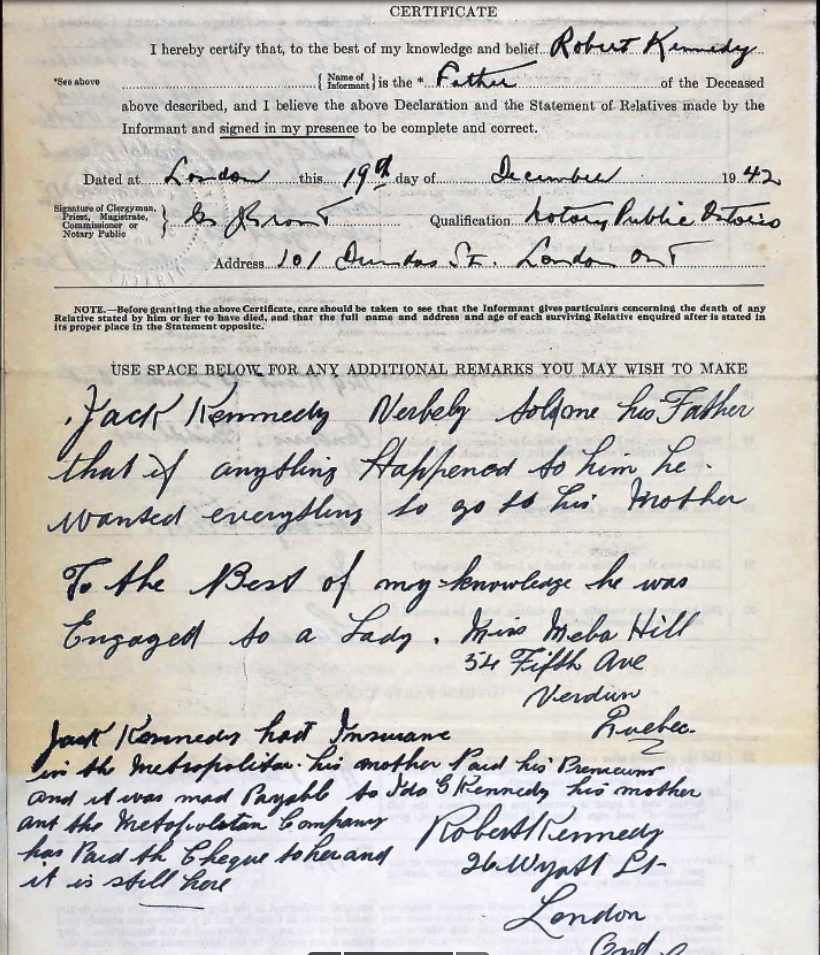 CERTIFICATE
I hereby certify that, to the best of my knowledge and belief Robert Kennedy
*See above { Name of Informant } is the * Father of the Deceased
above described, and I believe the above Declaration and the Statement of Relatives made by the
Informant and signed in my presence to be complete and correct.
Dated at London this 19th day of December 1942
Signature of Clergyman, Priest, Magistrate, Commissioner or Notary Public } Qualification Notary Public Ontario
Address 101 Dundas St. London Ont
NOTE.—Before granting the above Certificate, care should be taken to see that the Informant gives particulars concerning the death of any
Relative stated by him or her to have died, and that the full name and address and age of each surviving Relative enquired after is stated in
its proper place in the Statement opposite.
USE SPACE BELOW FOR ANY ADDITIONAL REMARKS YOU MAY WISH TO MAKE
Jack Kennedy Verbely told me his Father
that if anything Happened to him he
wanted everything to go to his Mother
To the Best of my knowledge he was
Engaged to a Lady. Miss Meba Hill
54 Fifth Ave
Verdun
Quebec.
Jack Kennedy had Insurance
in the Metropolitan. his mother Paid his Premeum
and it was mad Payable to Ida G Kennedy his mother
ant the Metopolotan Company
has Paid th Cheque to her and
it is still here
Robert Kennedy
26 Wyatt St
London